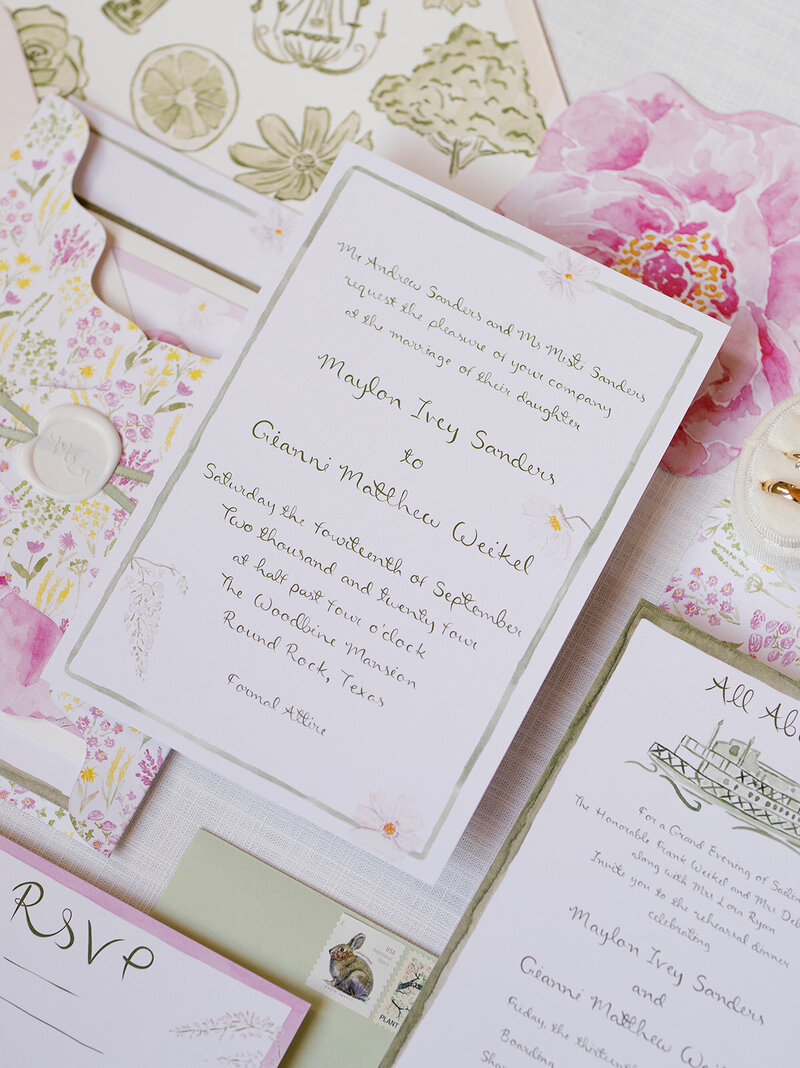 Mr Andrew Sanders and Ms Misti Sanders
request the pleasure of your company
at the marriage of their daughter
Maylon Ivey Sanders
to
Gianni Matthew Weikel
Saturday the fourteenth of September
Two thousand and twenty four
at half past four o'clock
The Woodbine Mansion
Round Rock, Texas
Formal Attire
All Abo
For a Grand Evening of Sailin
The Honorable Frank Weikel and Mrs Deb
along with Mrs Lora Ryan
Invite you to the rehearsal dinner
celebrating
Maylon Ivey Sanders
and
Gianni Matthew Wei
Friday, the thirteenth
Boarding
RSVP
USA
PLANT